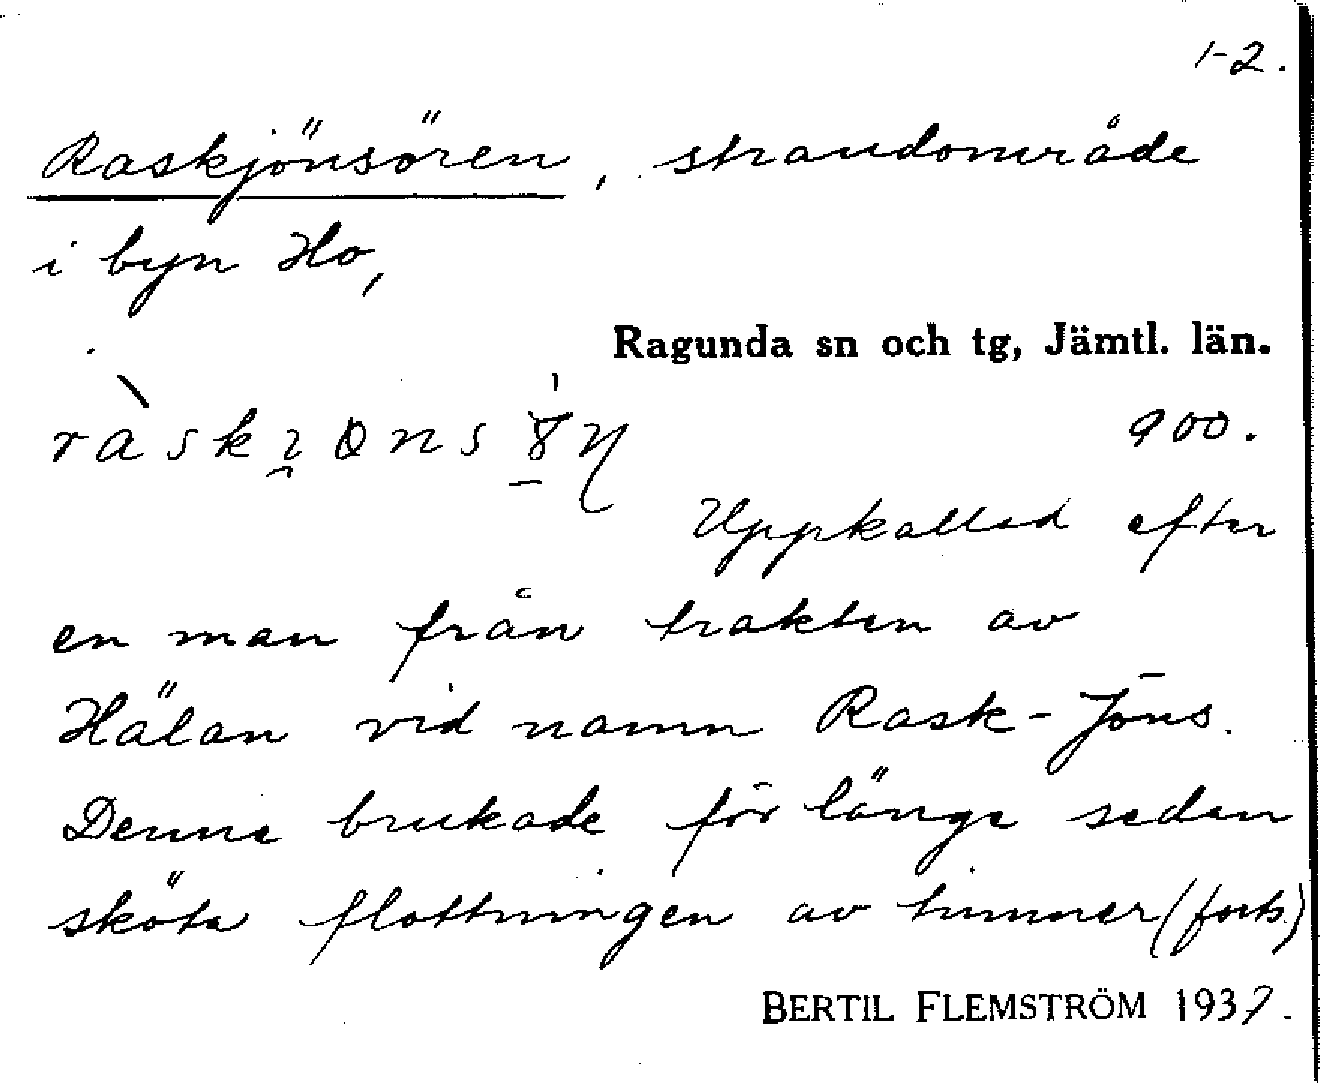 1-2.
Raskjönsören, strandområde
i byn Ho,
Ragunda sn och tg, Jämtl. län.
900.
Uppkallad efter
en man från trakten av
Hälan vid namn Rask-Jöns.
Denne brukade för länge sedan
sköta flottningen av timmer (forts.)
BERTIL FLEMSTRÖM 1937.